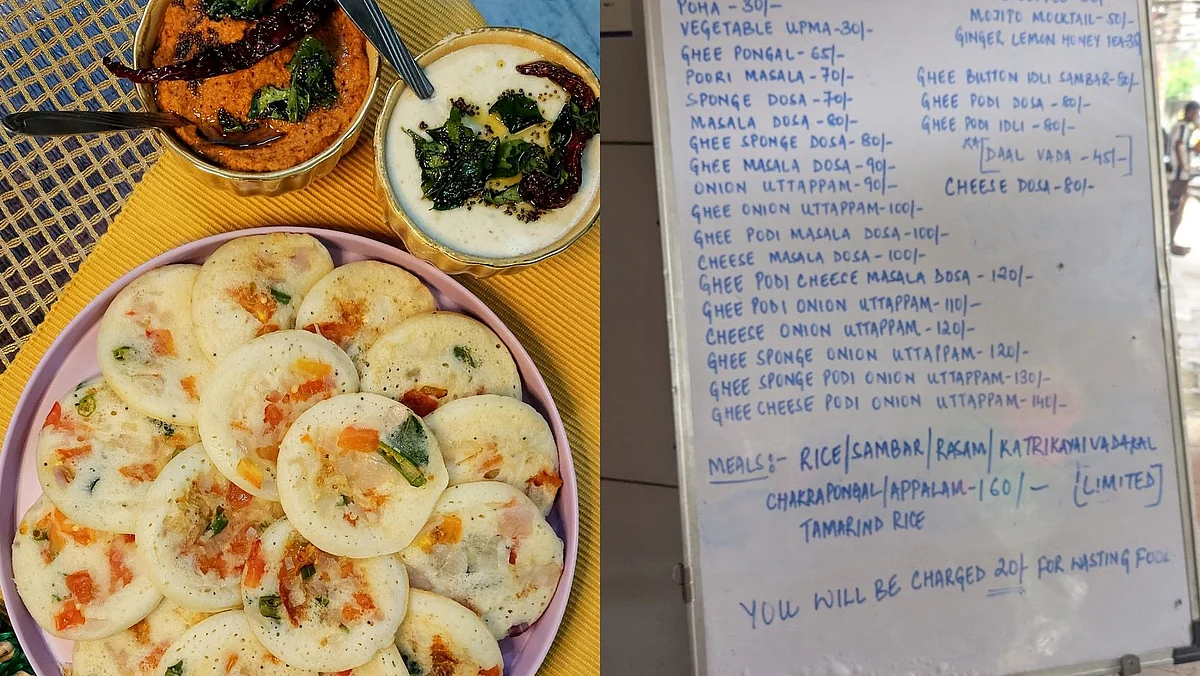 POHA - 30/-
VEGETABLE UPMA-30/-
GHEE PONGAL- 65/-
POORI MASALA - 70/-
SPONGE DOSA - 70/-
MASALA DOSA - 80/-
GHEE SPONGE DOSA- 80/-
GHEE MASALA DOSA- 90/-
ONION UTTAPPAM - 90/-
GHEE ONION UTTAPPAM-100/-
GHEE PODI MASALA DOSA-100/-
CHEESE MASALA DOSA - 100/-
GHEE PODI CHEESE MASALA DOSA - 120/-
GHEE PODI ONION UTTAPPAM-110/-
CHEESE ONION UTTAPPAM - 120/-
GHEE SPONGE ONION UTTAPPAM- 120/-
GHEE SPONGE PODI ONION UTTAPPAM-130/-
GHEE CHEESE PODI ONION UTTAPPAM-140/-
MOJITO MOCKTAIL- 50/-
GINGER LEMON HONEY TEA-
GHEE BUTTON IDLI SAMBAR-
GHEE PODI DOSA - 80/-
GHEE PODI IDLI - 80/-
**[DAAL VADA - 45/-]
CHEESE DOSA- 80/-
MEALS:- RICE/SAMBAR/RASAM/KATRIKAYAIVADAKAL
CHAKRAPONGAL/APPALAM-160/- [LIMITED]
TAMARIND RICE
YOU WILL BE CHARGED 20/- FOR WASTING FOOD